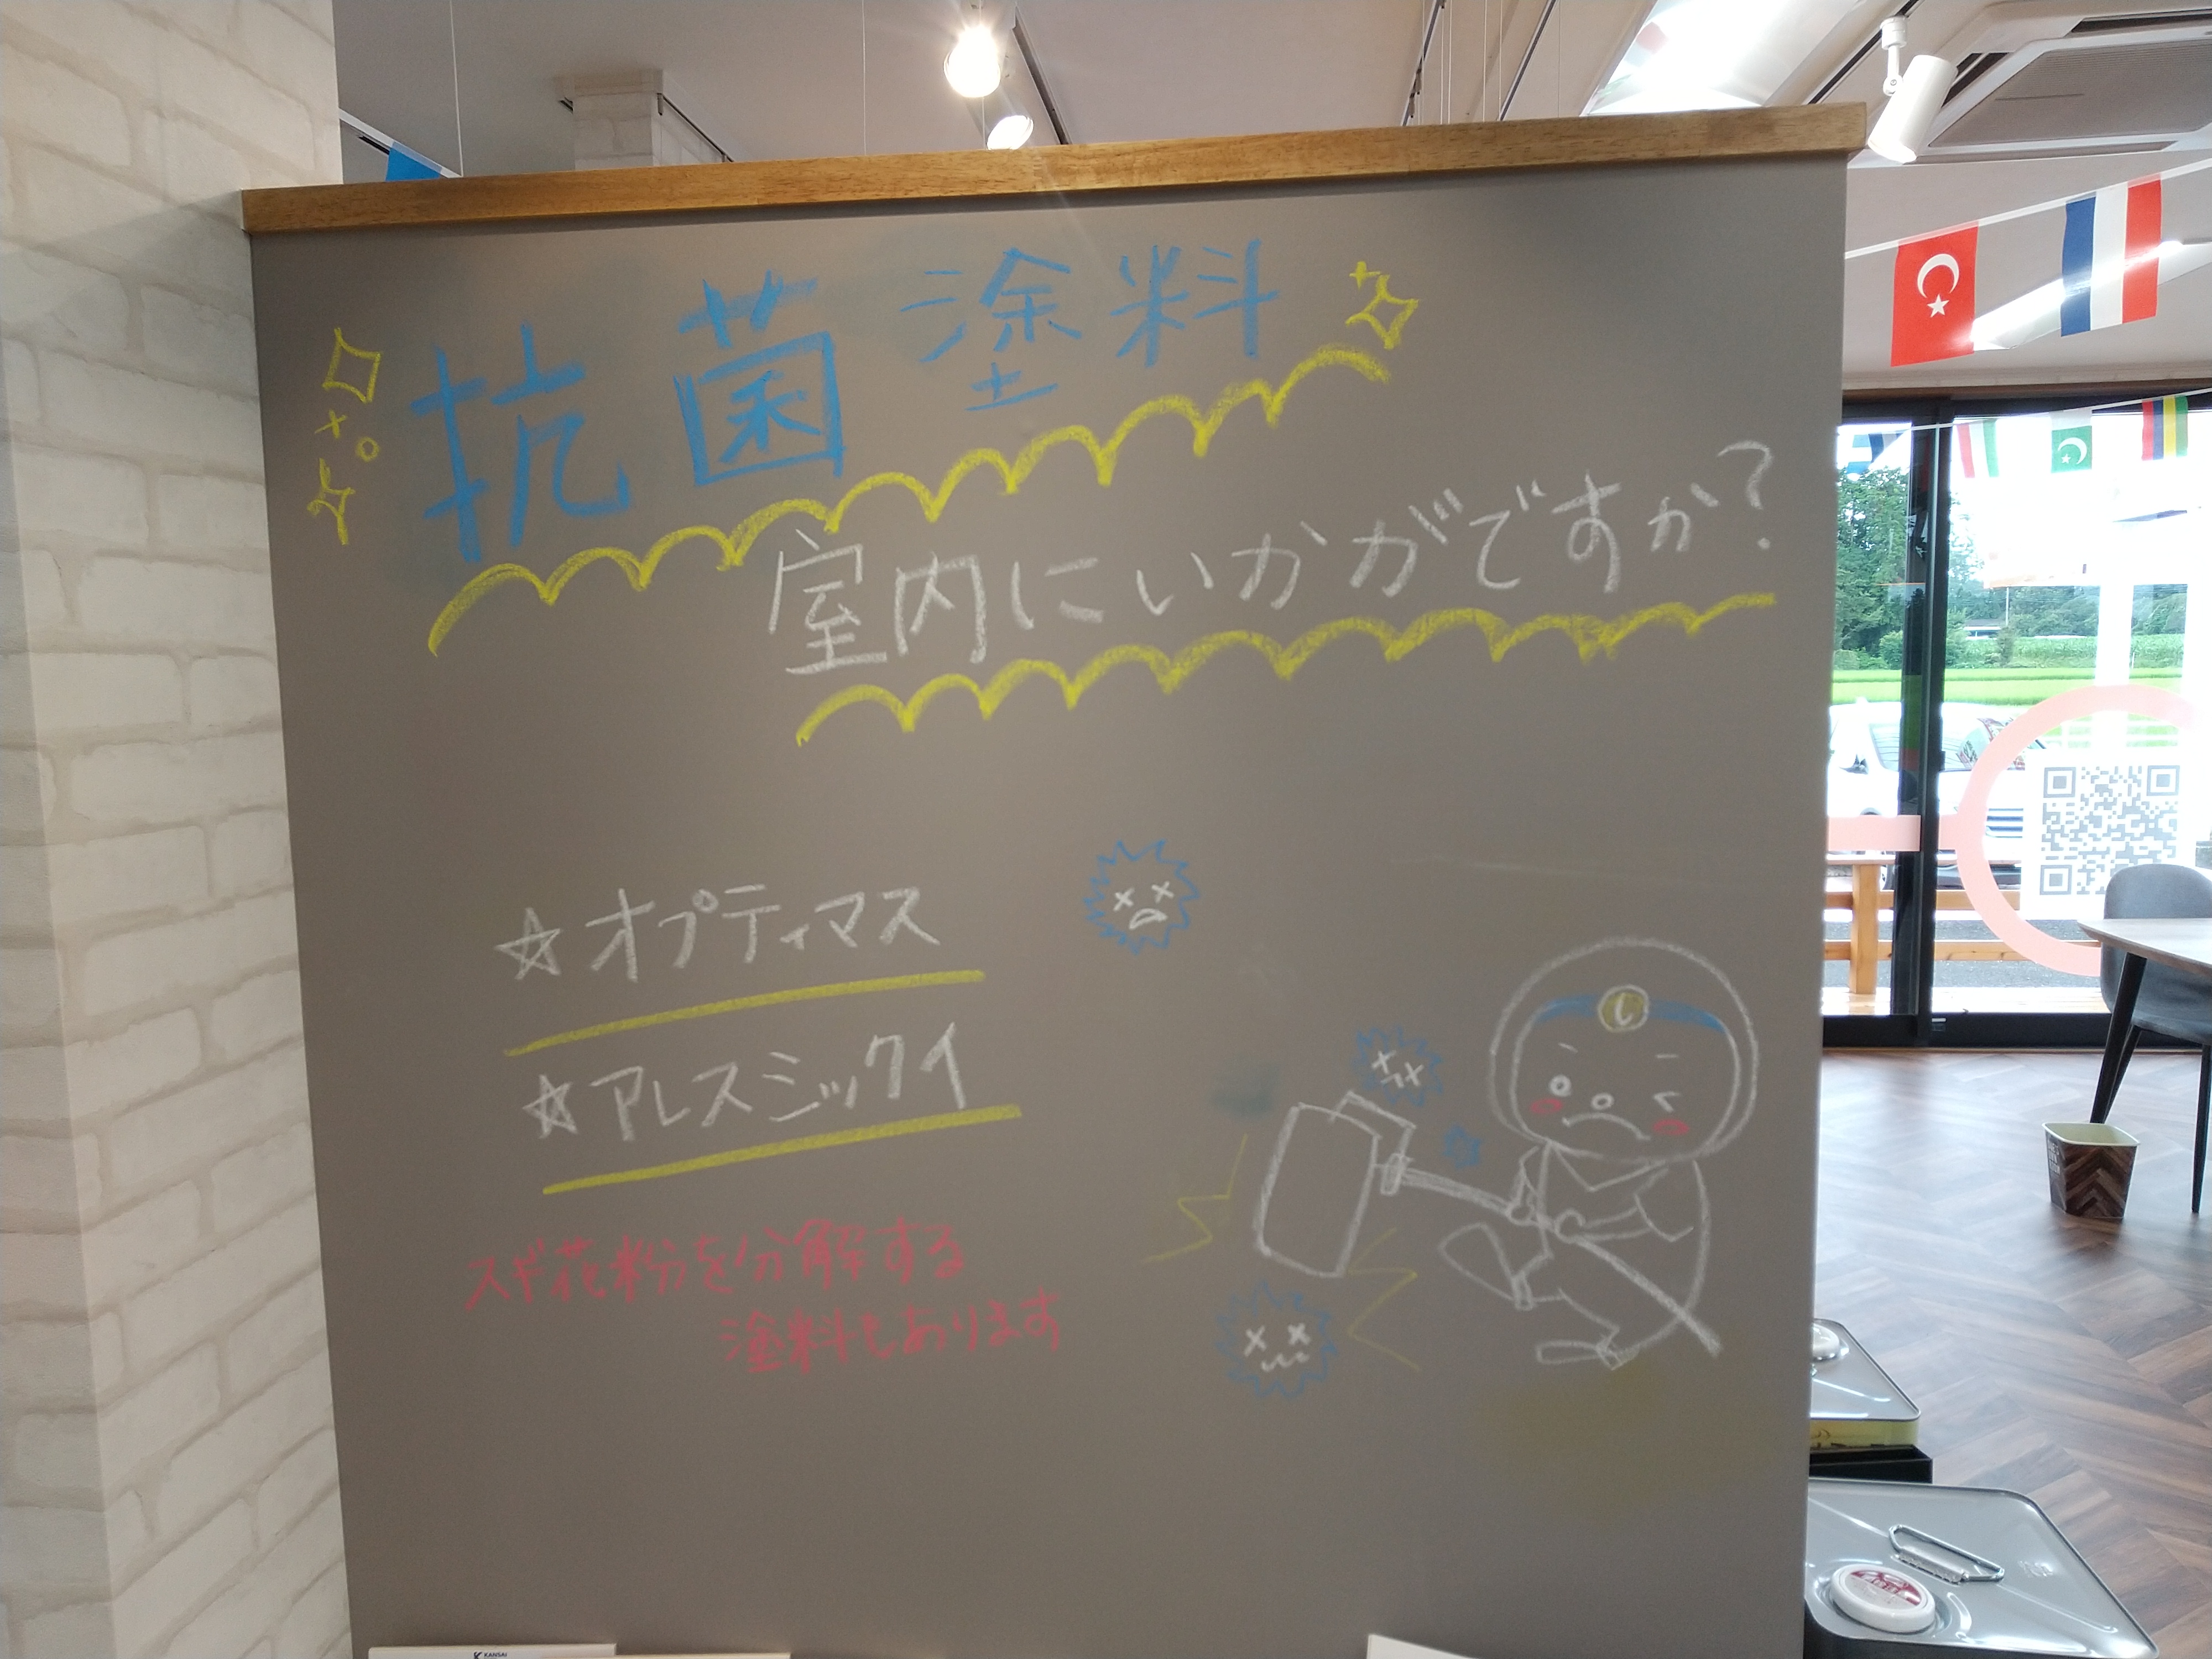 抗菌塗料
室内にいかがですか?
☆オプティマス
☆アレスシックイ
スギ花粉を分解する
塗料もあります
し
KANSAI